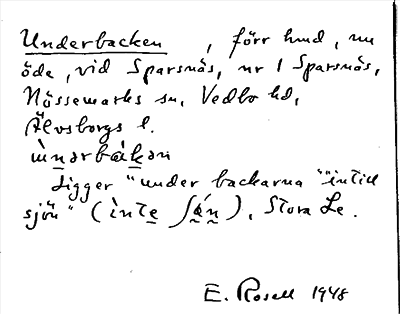 Underbacken, förr hmd, nu
öde, vid Sparsnäs, nr 1 Sparsnäs,
Nössemarks sn, Vedbo hd,
Älvsborgs l.
ùnərbàkən
Ligger "under backarna" "intill
sjön" (ìntə ʃǿn), Stora Le.
E. Rosell 1948